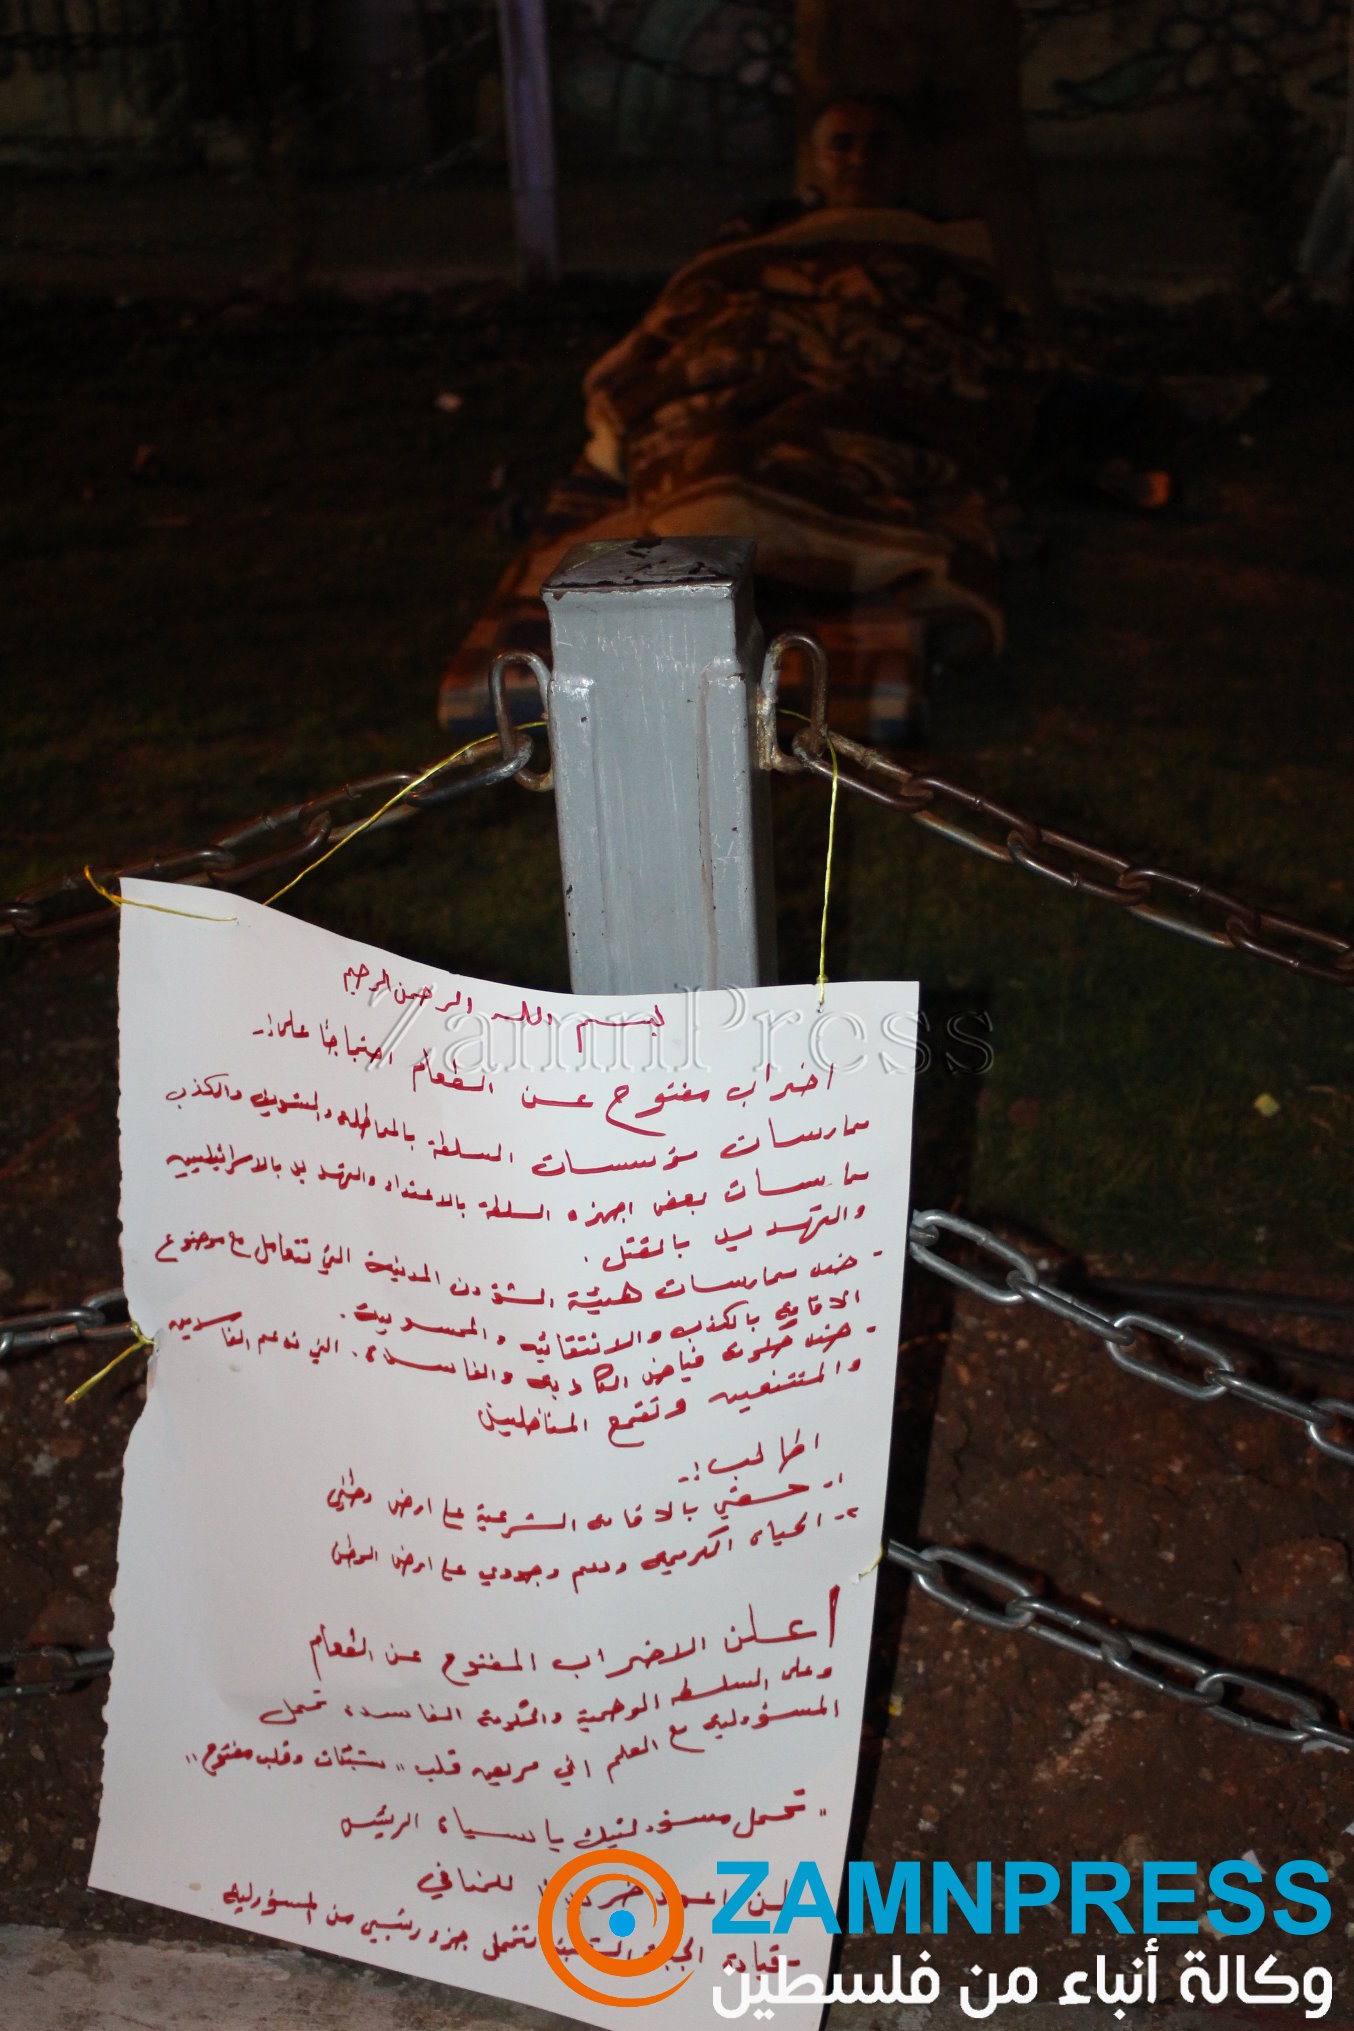 بسم الله الرحمن الرحيم
اضراب مفتوح عن الطعام احتجاجًا على :-
ممارسات مؤسسات السلطة بالمماطله والتسويف والكذب
ممارسات بعض اجهزه السلطة بالاعتداء والتهديد بالاسرائيليين
والتهديد بالقتل .
- ضد ممارسات هيئة الشؤون المدنية التي تتعامل مع موضوع
الاقامه بالكذب والانتقائيه والمحسوبيه .
- ضد حكومة فياض الكاذبه والفاسدة . التي تدعم الفاسدين
والمتنفعين وتقمع المناضلين
اطالب :-
١- حقي بالاقامه الشرعية على ارض وطني
٢- الحياه الكريمه ولم وجودي على ارض الوطن
أعلن الاضراب المفتوح عن الطعام
وعلى السلطه الوهمية والحكومة الفاسده تحمل
المسؤوليه مع العلم اني مريض قلب "بشبكات وقلب مفتوح"
" تحمل مسؤوليتك يا سيادة الرئيس
لن اعود للمنافي
- قيادة الجبهة الشعبية تتحمل جزء رئيسي من المسؤوليه
ZamnPress
ZAMNPRESS
وكالة أنباء من فلسطين